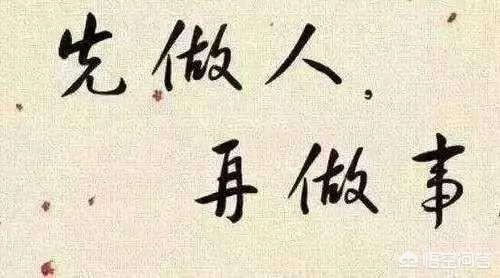 先做人，
再做事
悟空问答